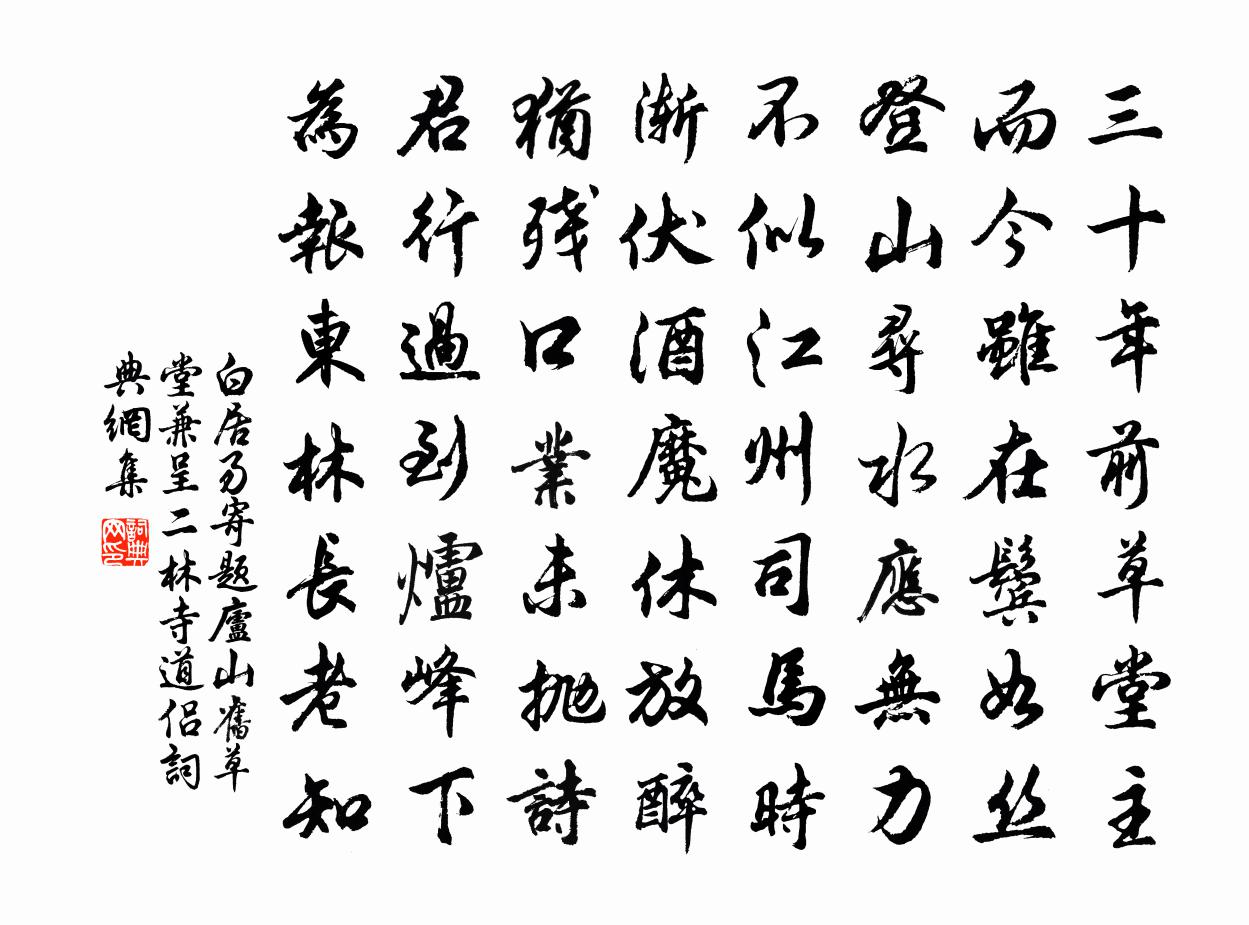 三十年前草堂主
而今雖在鬢如絲
登山尋水應無力
不似江州司馬時
漸伏酒魔休放醉
猶殘口業未抛詩
君行過到爐峰下
為報東林長老知
白居易寄題廬山舊草
堂兼呈二林寺道侶詞
典網集
詞典
网印